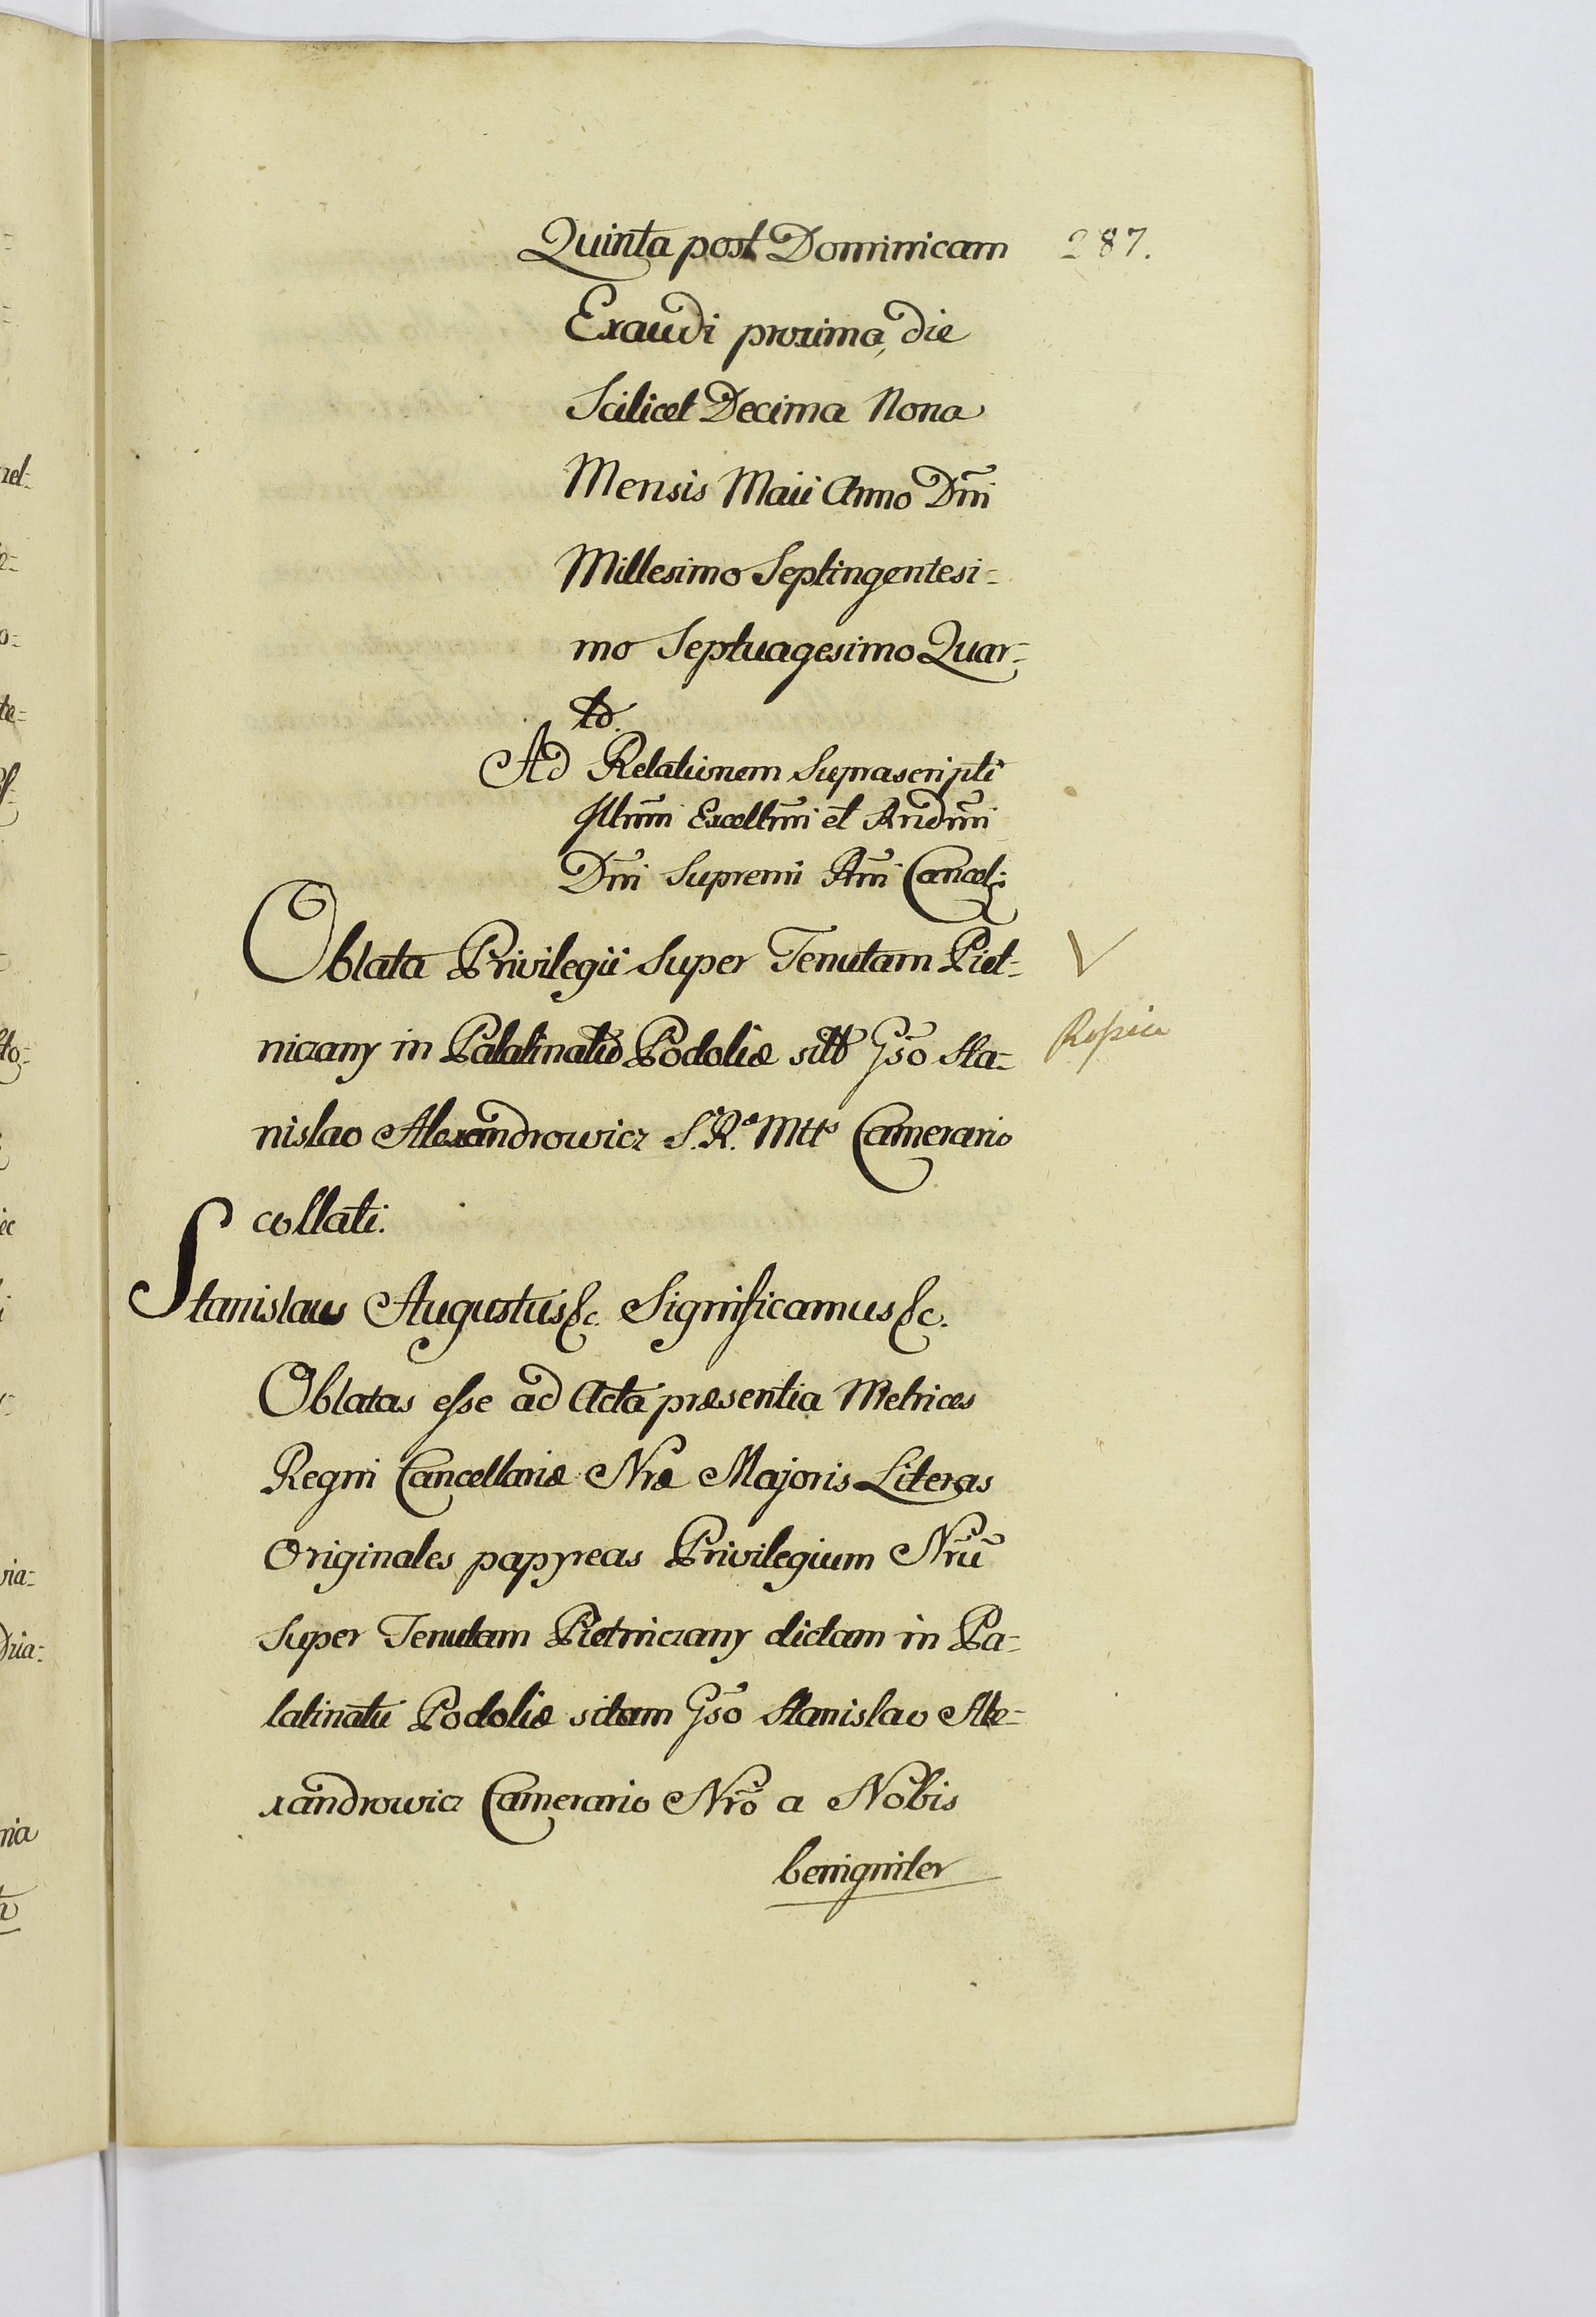 287.
Quinta post Dominicam
Exaudi proxima, die
Scilicet Decima Nona
Mensis Maii Anno Dni
Millesimo Septingentesi=
mo Septuagesimo Quar=
to.
Ad Relationem Suprascripti
Illmi Excellmi et Rndmi
Dni Supremi Rni Cancel:
Oblata Privilegii Super Tenutam Piet=
niczany in Palatinatu Podoliæ sitt Gso Sta=
nislao Alexandrowicz S. R. Mtts Camerario
collati.
Stanislaus Augustus &c. Significamus &c.
Oblatas esse ad Acta præsentia Metrices
Regni Cancellariæ Nræ Majoris Literas
Originales papyreas Privilegium Nrũ
super Tenutam Pietniczany dictam in Pa=
latinatu Podoliæ sitam Gso Stanislao Ale=
xandrowicz Camerario Nro a Nobis
benigniter